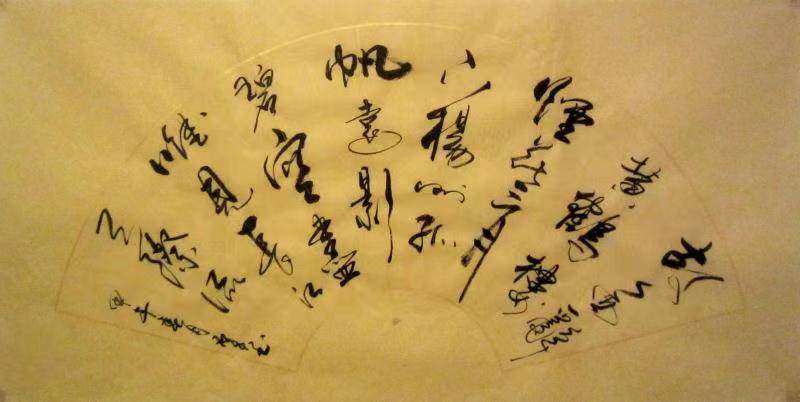 故人西辭
黃鶴樓
煙花三月
下揚州孤
帆遠影
碧空盡
唯見長江
天際流